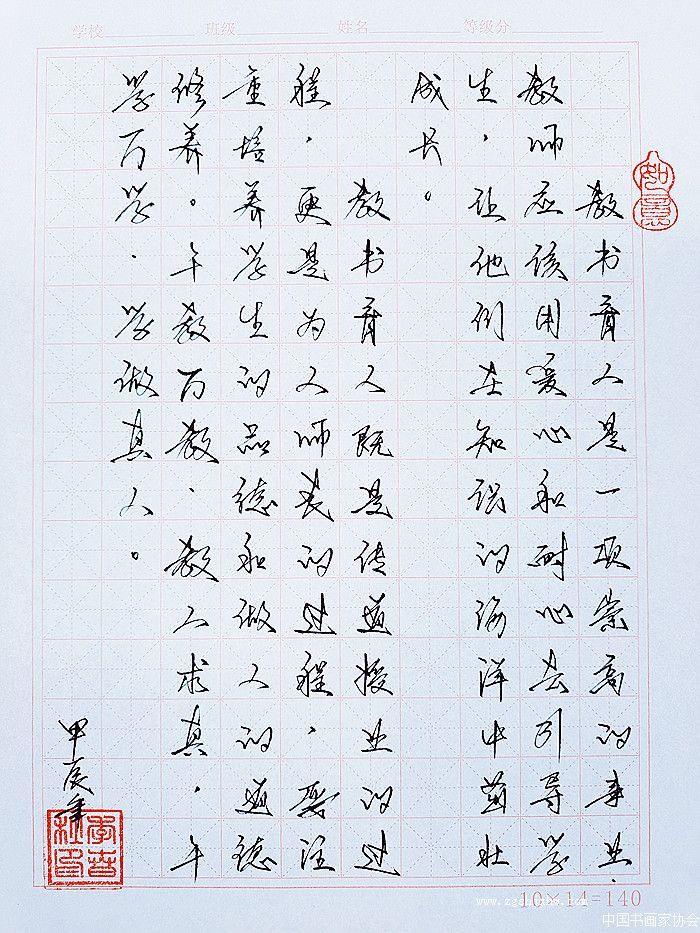 学校 班级 姓名 等级分
如意
教书育人是一项崇高的事业，
教师应该用爱心和耐心去引导学
生，让他们在知识的海洋中茁壮
成长。
教书育人既是传道授业的过
程，更是为人师表的过程，要注
重培养学生的品德和做人的道德
修养。千教万教，教人求真，千
学万学，学做真人。
甲辰年
10×14=140
中国书画家协会